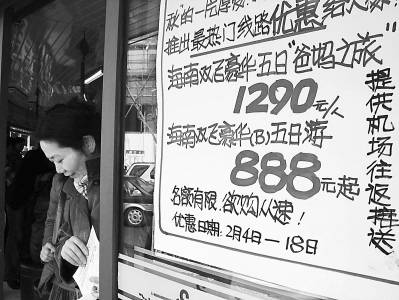 推出最热门线路优惠给大家!
海南双飞豪华五日"爸妈之旅"
1290元/人
海南双飞豪华(B)五日游
888元起
名额有限,欲购从速!
优惠日期:2月4日—18日
提供机场往返接送